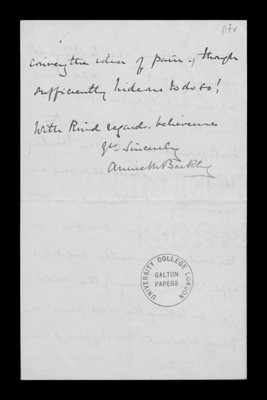 convey the idea of pain, though
sufficiently hideous to do so!
With kind regards believe me
Yrs Sincerely
Annie M Barkley
UNIVERSITY COLLEGE LONDON
GALTON
PAPERS